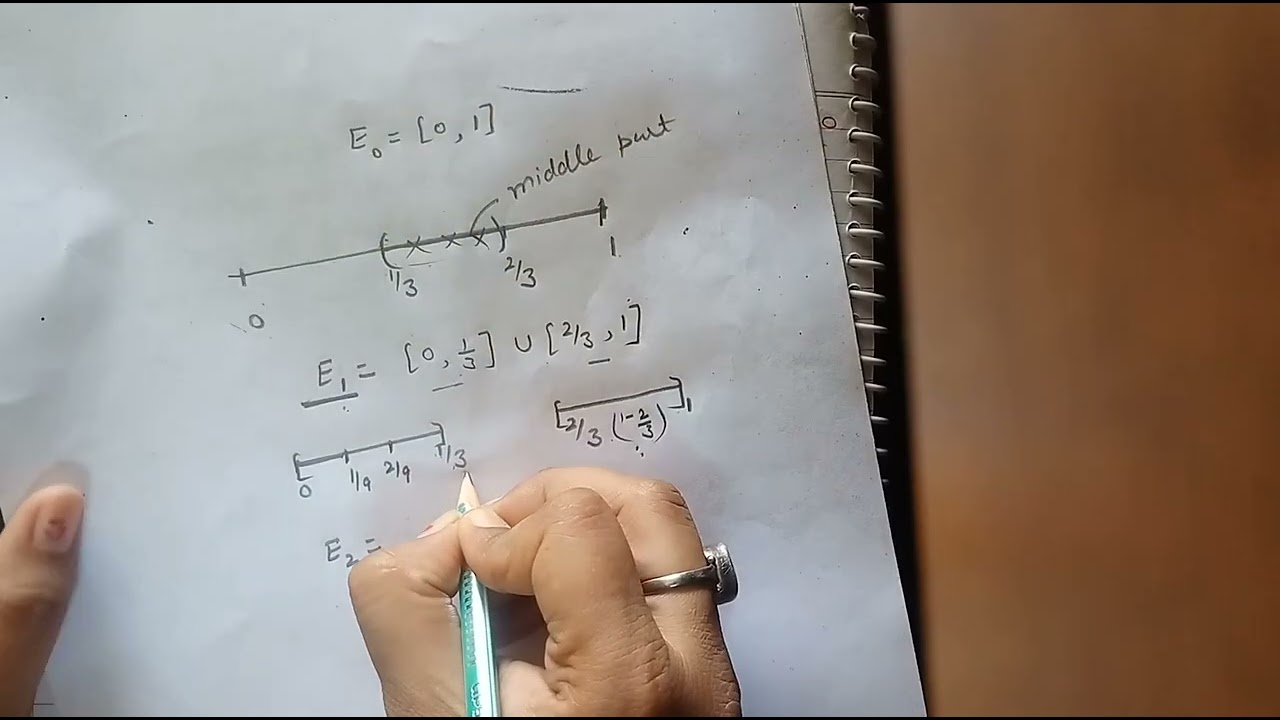 E₀ = [0, 1]
middle part
0 1/3 2/3 1
E₁ = [0, 1/3] ∪ [2/3, 1]
0 1/9 2/9 1/3
2/3 (1-2/3) 1
E₂ =